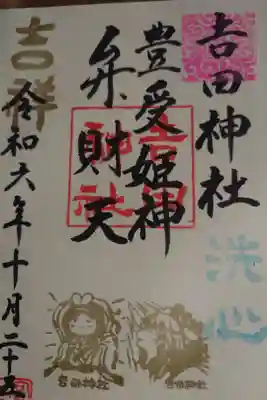 吉田神社
豊受姫神
弁財天
吉田神社
洗心
吉祥
令和六年十月二十五
吉田神社
吉田神社